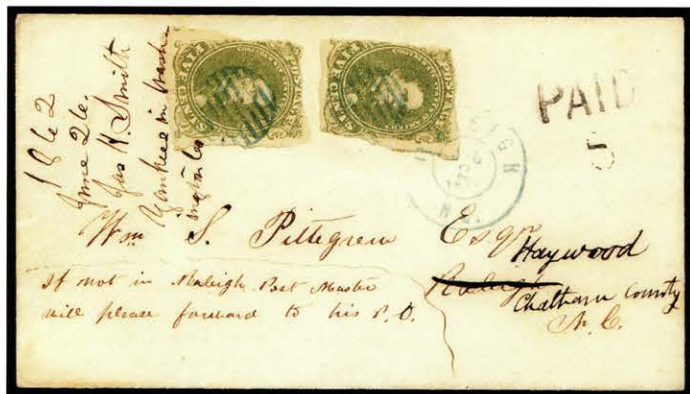 1862
June 26.
Jas H. Smith
Yankees in Wash-
ington Co
FIVE CENTS
POSTAGE
FIVE CENTS
POSTAGE
PAID
5
Wm S. Pettegrew Esqr
Haywood
Raleigh
Chatham County
N. C.
If not in Raleigh Post Master
will please forward to his P.O.